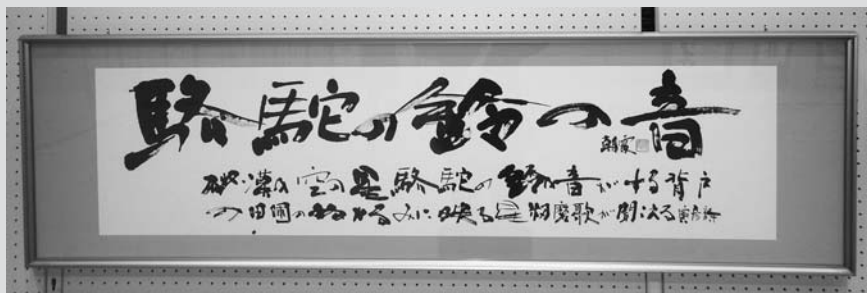 駱駝の鈴の音
砂漠の空の星駱駝の鈴の音がする背戸
の田圃のぬかるみに映る星籾磨歌が聞える寅彦詩